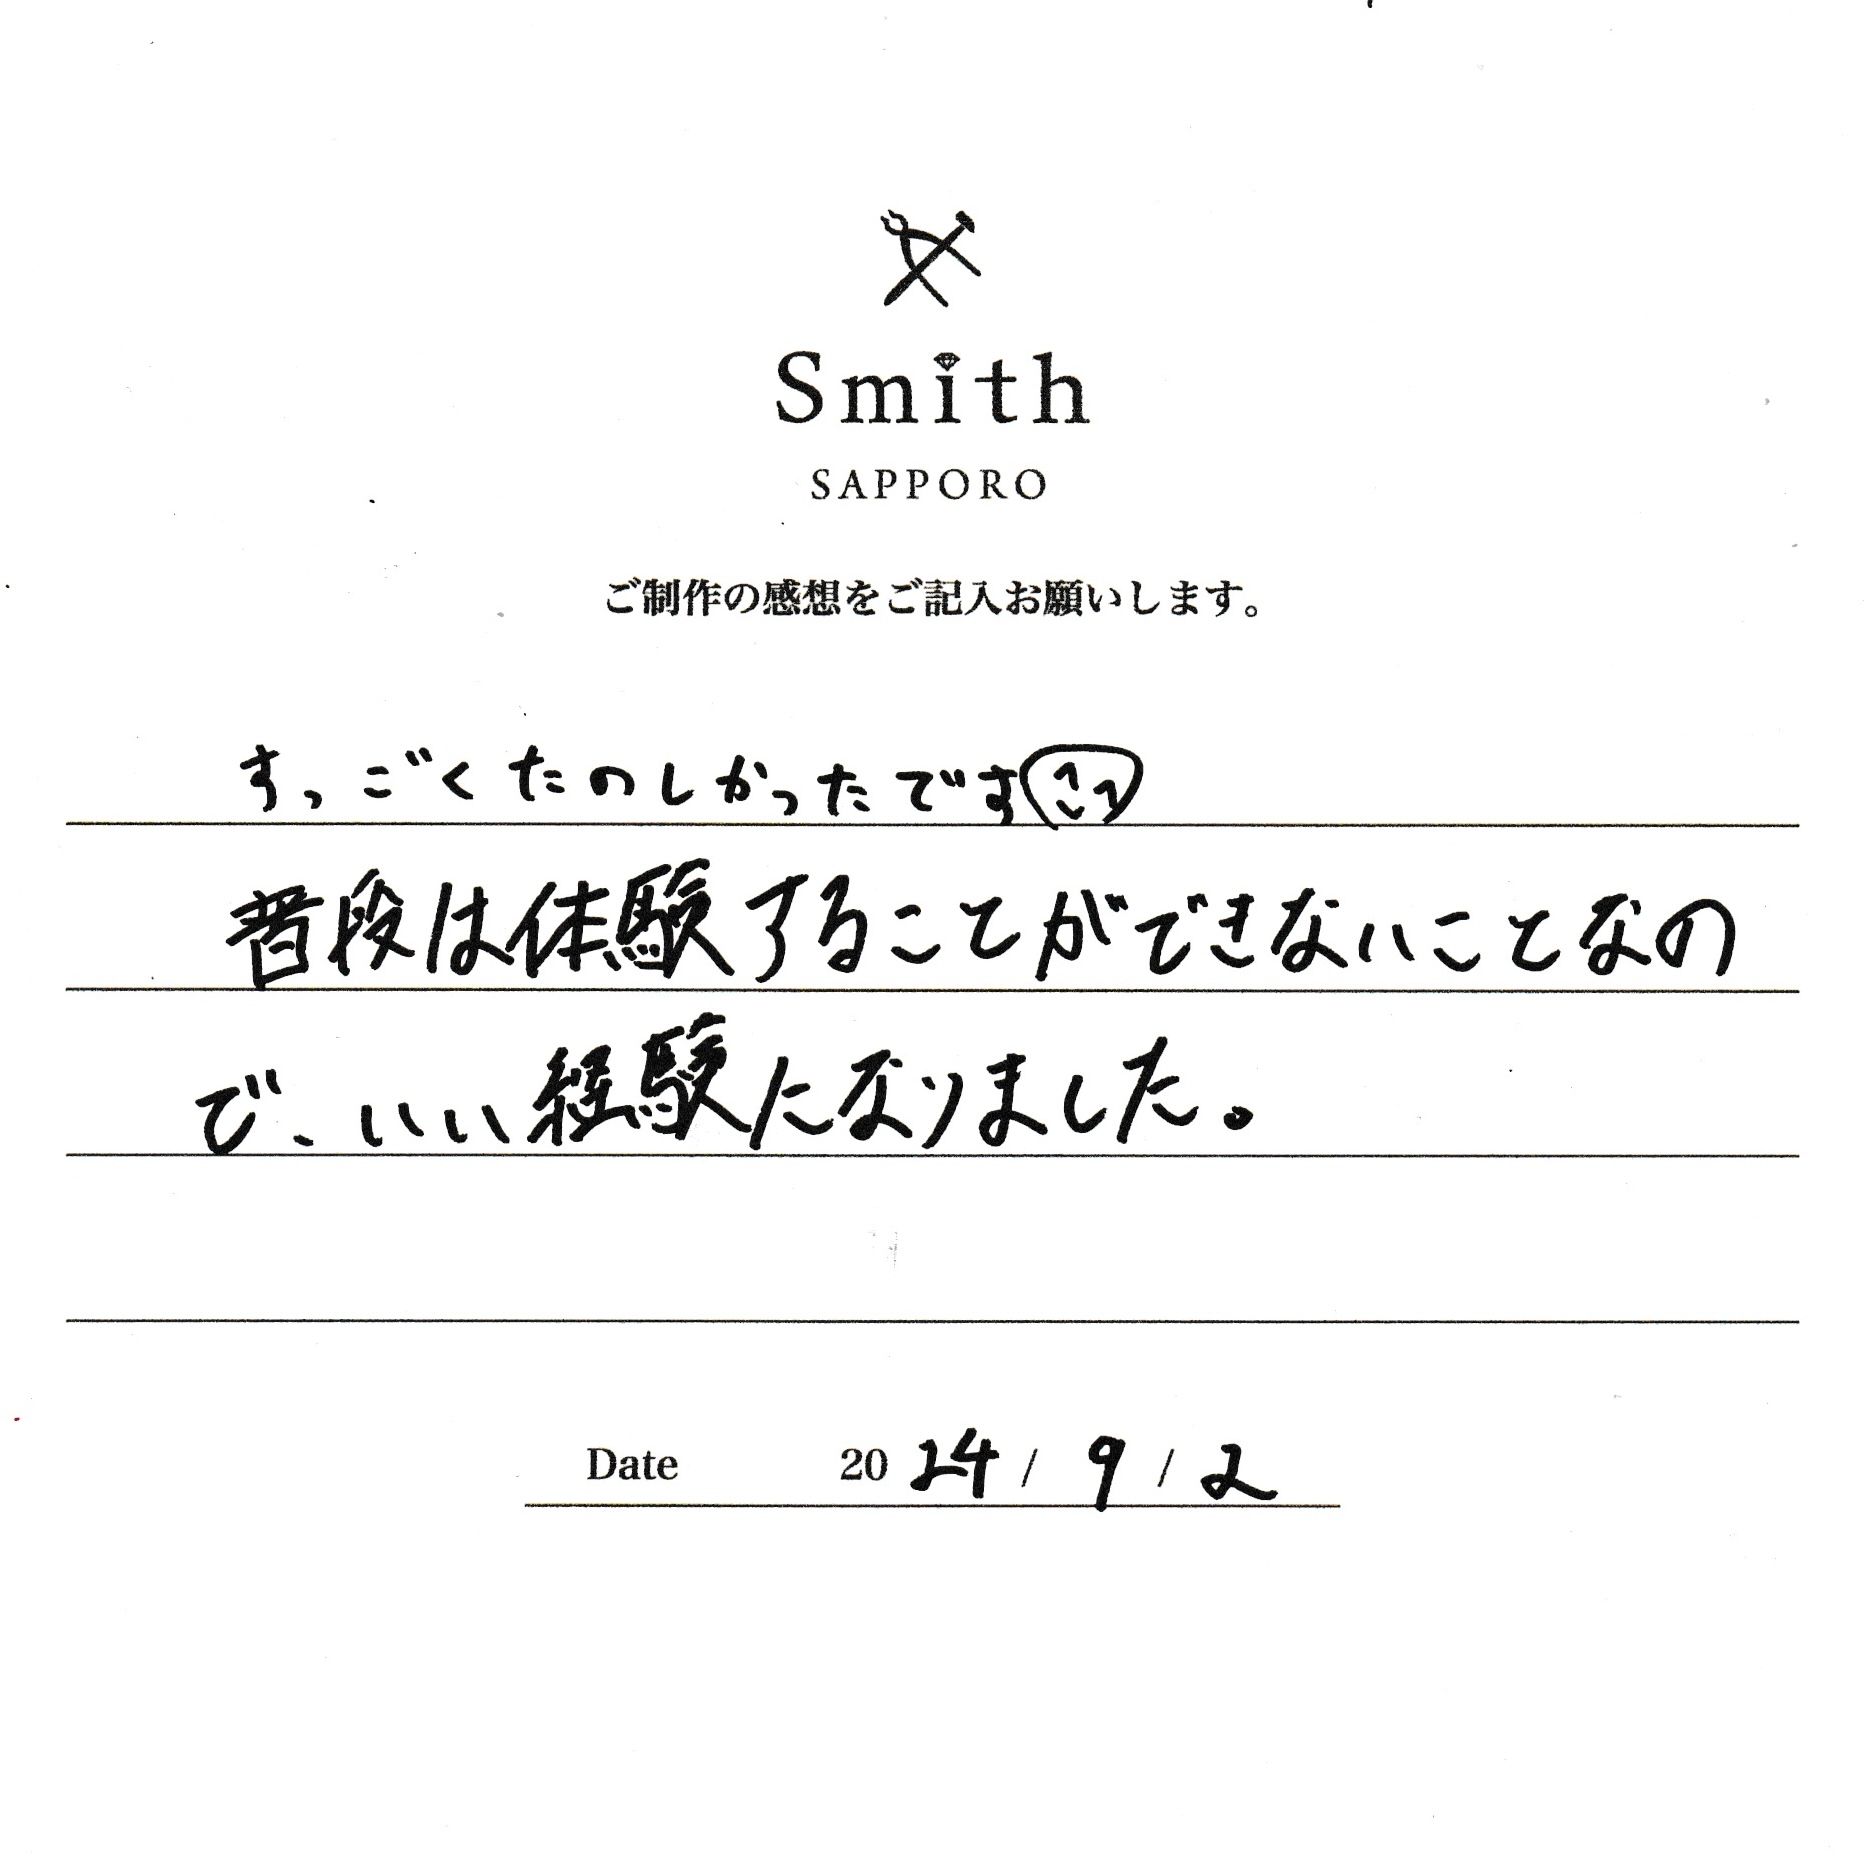 Smith
SAPPORO
ご制作の感想をご記入お願いします。
すっごくたのしかったです
普段は体験することができないことなの
で、いい経験になりました。
Date 2024 / 9 / 2